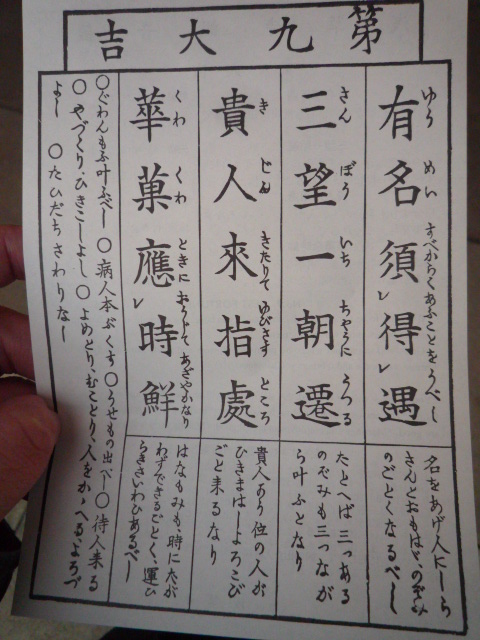 第九大吉
有名須レ得レ遇
ゆう めい すべからくあふことをうべし
名をあげ人にしら
れんとおもはゞ、のぞみ
のごとくなるべし
三望一朝遷
さん ぼう いち ちやうに うつる
たとへば三つある
のぞみも三つなが
ら叶ふとなり
貴人來指處
き じん きたりて ゆびさす ところ
貴人あり位の人が
ひきまはしよろこび
ごと来るなり
華菓應レ時鮮
くわ くわ ときに おうじて あざやかなり
はなもみも、時にたが
わずできるごとく、運ひ
らきさいわひあるべし
〇ぐわんもふ叶ふべし 〇病人本ぶくす 〇うせもの出べし 〇待人来る
〇やづくり、ひきこしよし 〇よめとり、むことり、人をかゝへる、よろづ
よし 〇たびだちさわりなし